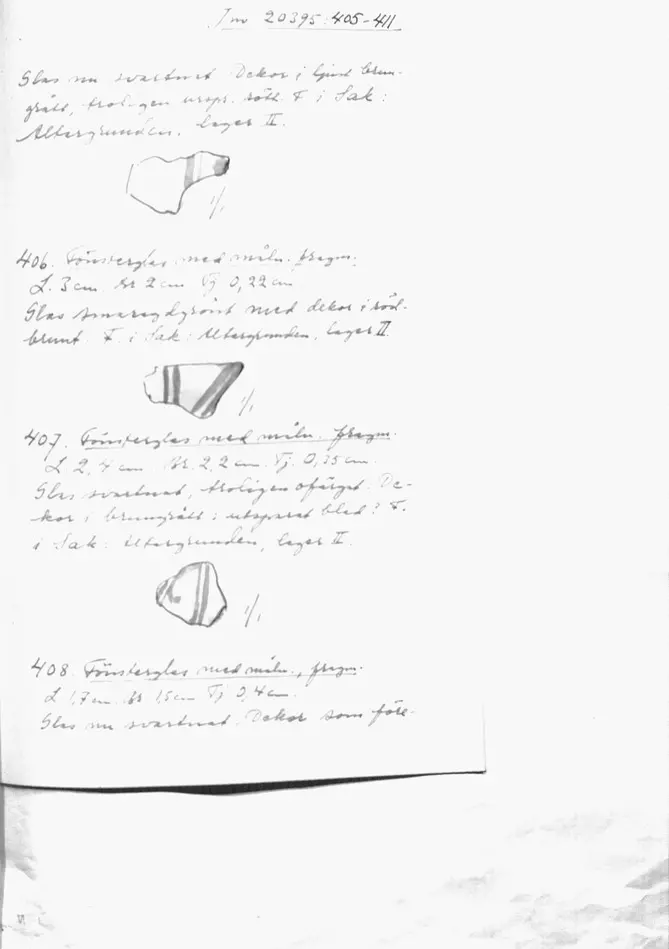 Inv 20395:405-411
Glas nu svartnat. Dekor i ljust brun-
grått, troligen urspr. rött. F. i Sak:
Altargrunden, lager II.
1/1
406. Fönsterglas med måln. fragm.
L. 3 cm Br 2 cm Tj 0,22 cm
Glas smaragdgrönt med dekor i röd-
brunt. F. i Sak: Altargrunden, lager II.
1/1
407. Fönsterglas med måln. fragm.
L 2,4 cm Br. 2,2 cm. Tj. 0,35 cm.
Glas svartnat, troligen ofärgat. De-
kor i brungrått: utsparat blad? F.
i Sak: Altargrunden, lager II.
1/1
408. Fönsterglas med måln., fragm.
L 1,7 cm Br 1,5 cm Tj 0,4 cm.
Glas nu svartnat. Dekor som före-